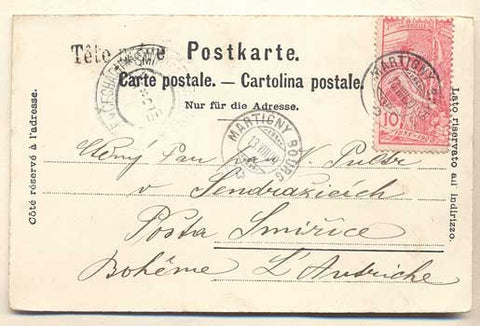 Tête Noire Postkarte.
Carte postale. — Cartolina postale.
Nur für die Adresse.
Côté réservé à l'adresse.
Lato riservato all' indirizzo.
MARTIGNY BOURG
MARTIGNY
10
Ctěný Pan Jan V.
v Sendražicích
Pošta Smiřice
Bohême L'Autriche